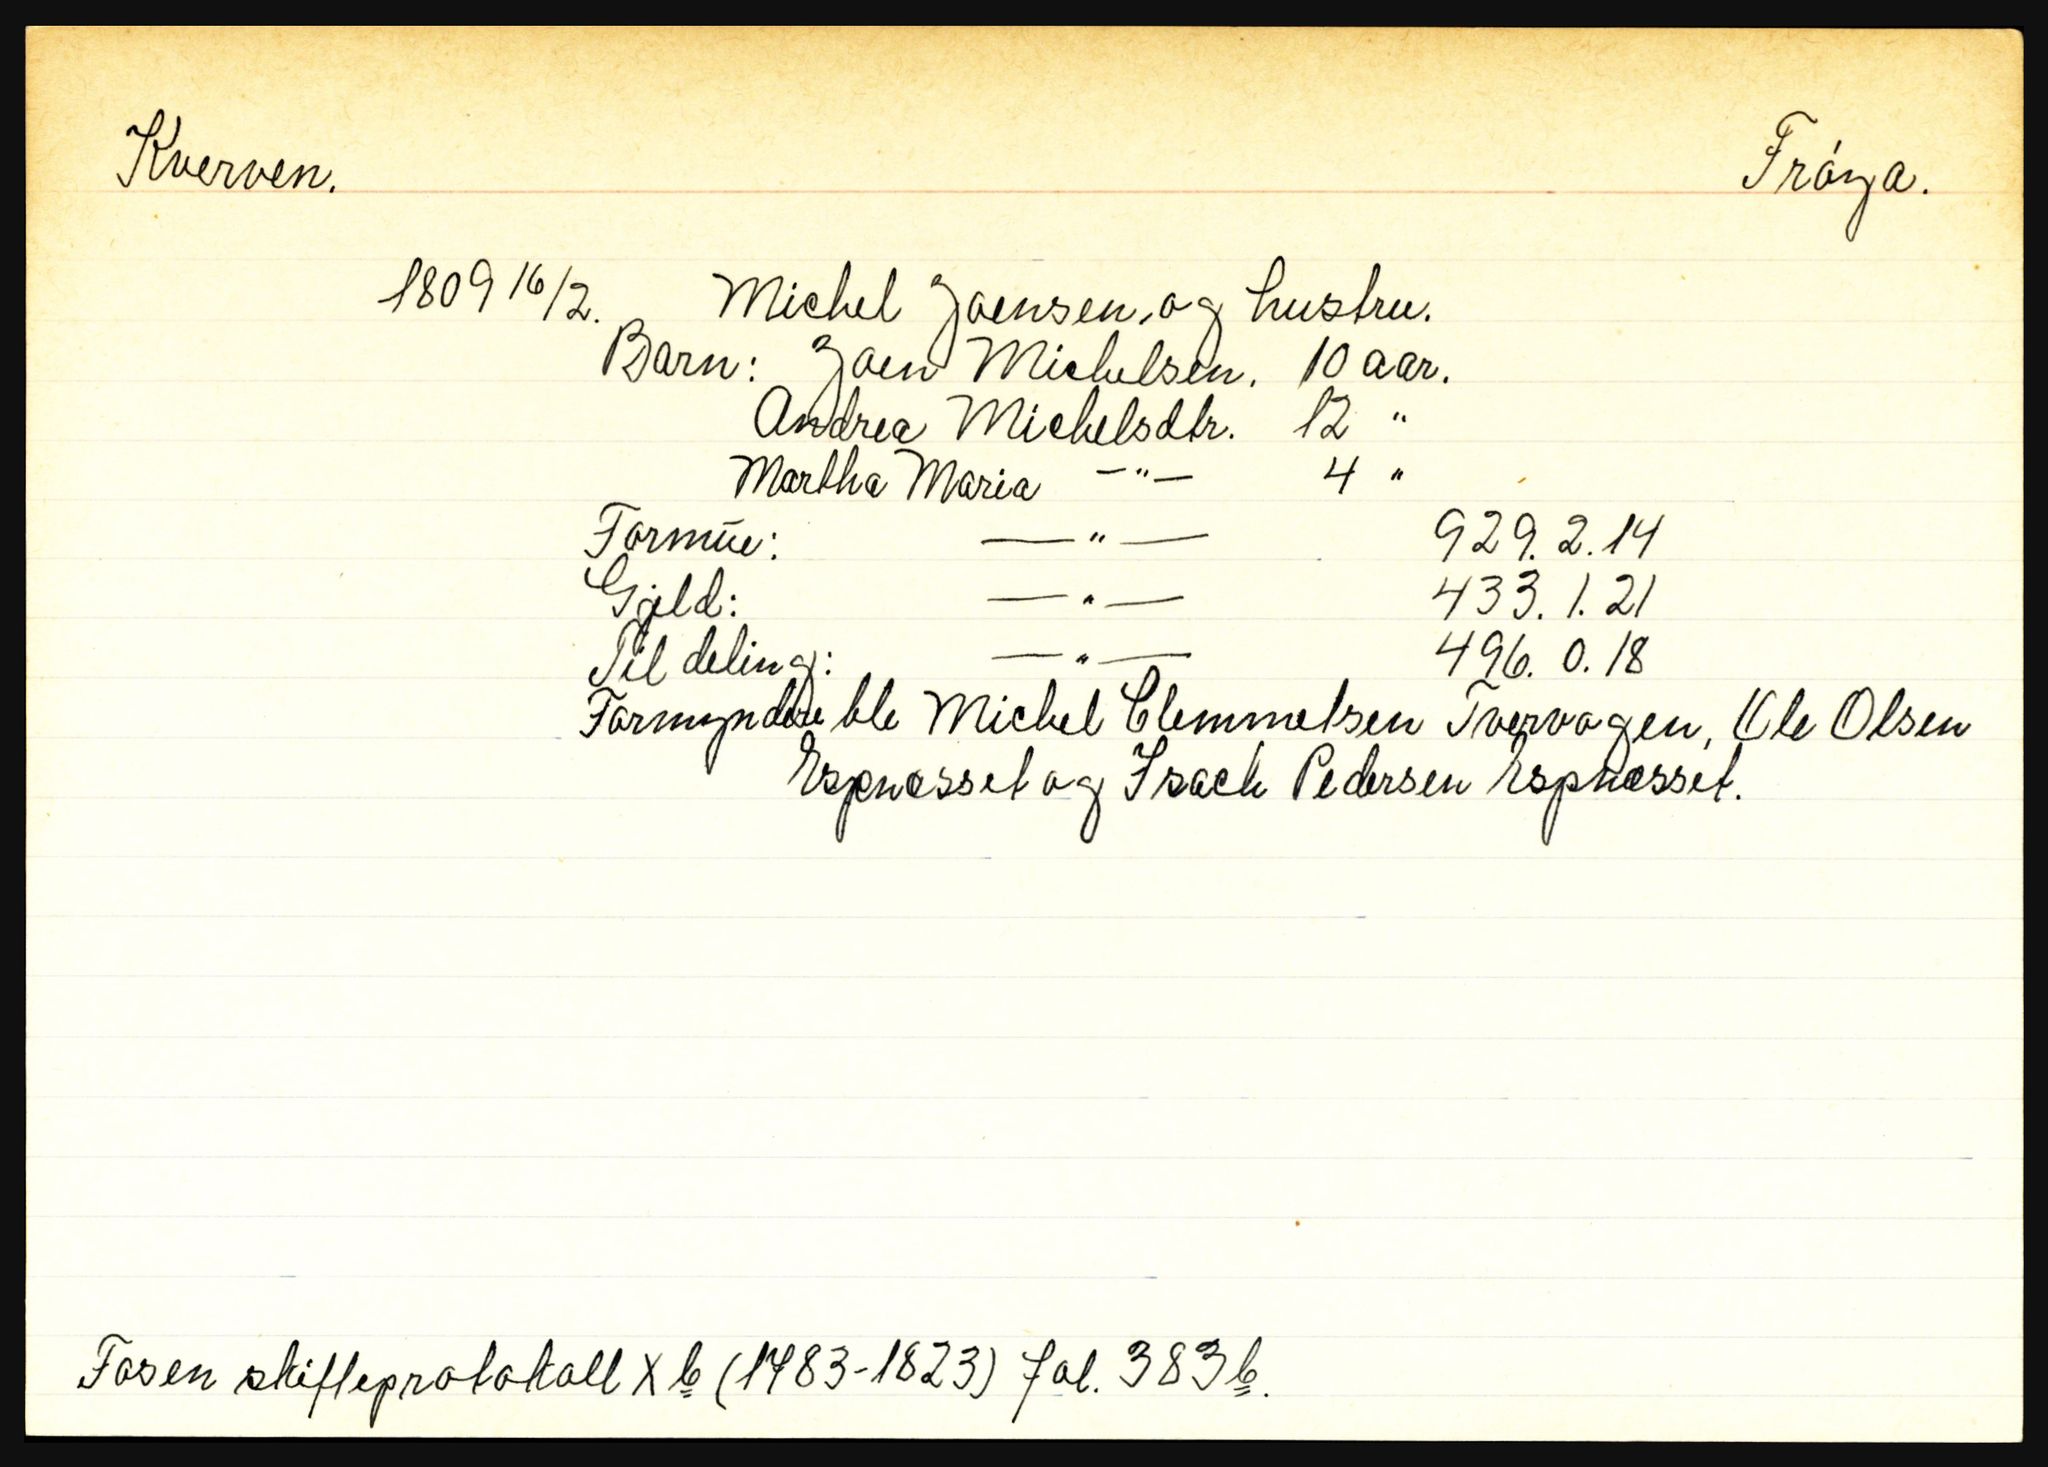 Kverven. Frøya.
1809 16/2. Michel Joensen, og hustru.
Barn: Joen Michelsen. 10 aar.
Andrea Michelsdtr. 12 "
Martha Maria —"— 4 "
Formüe: —"— 929. 2. 14
Gjeld: —"— 433. 1. 21
Til deling: —"— 496. 0. 18
Formyndere ble Michel Clemmetsen Tvervagen, Ole Olsen
Espnesset og Isach Pedersen Espnesset.
Fosen skifteprotokoll X b (1783-1823) fol. 383 b.